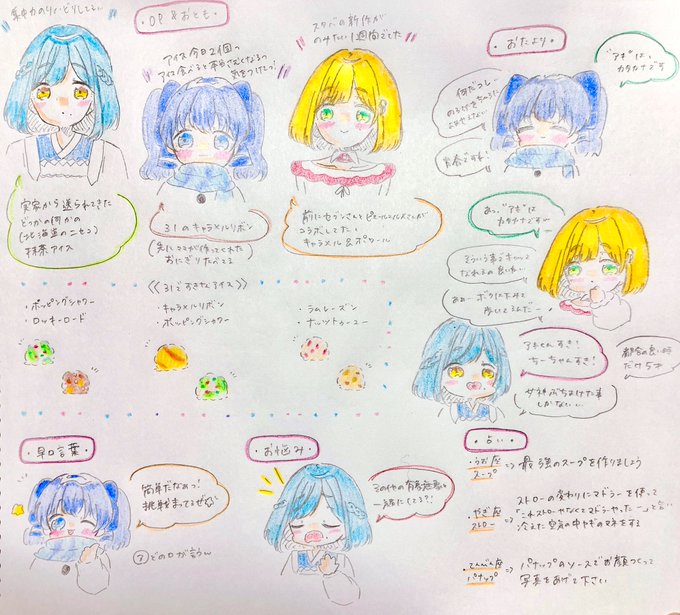 ・OP &おとも・
アイス今日2個っ
アイス食べると本日さむくなるっ
気をつけてっ!
スタバの新作が
のみたい1週間でした
実家から送られてきた
どっかの何かの
(北海道のニセコ)
抹茶アイス
31のキャラメルリボン
おにぎりたべてる
前にセブンさんとピエールエルメさんが
コラボしてたっ
キャラメル&ポワール
《31ですきなアイス》
・ポッピングシャワー
・ロッキーロード
・キャラメルリボン
・ポッピングシャワー
・ラムレーズン
・ナッツトゥユー
・おたより・
"アギ"は、
カタカナです
あっ、"アギ"は
カタカナですぃ
そういう事でキャッて
なれるの良いね…
あぁー ボクにためて
アギくんすき!
ちーちゃんすき!
都合の良い時
だけ5才
女神ぶちまけた事
しかない…
・早口言葉・
簡単だなぁっ!
挑戦まってるぜ
どの口が言うw
・お悩み・
その他の有象無象と
一緒にしてる?!
・占い・
・うお座
スープ
⇒ 最強のスープを作りましょう
・やぎ座
ストロー
⇒ ストローの変わりにマドラーを使って
「これストローやなくてマドラーやったー」と言い
冷えた空気の中やぎのマネをする
・てんびん座
パナップ
⇒ パナップのソースでお顔つくって
写真をあげて下さい